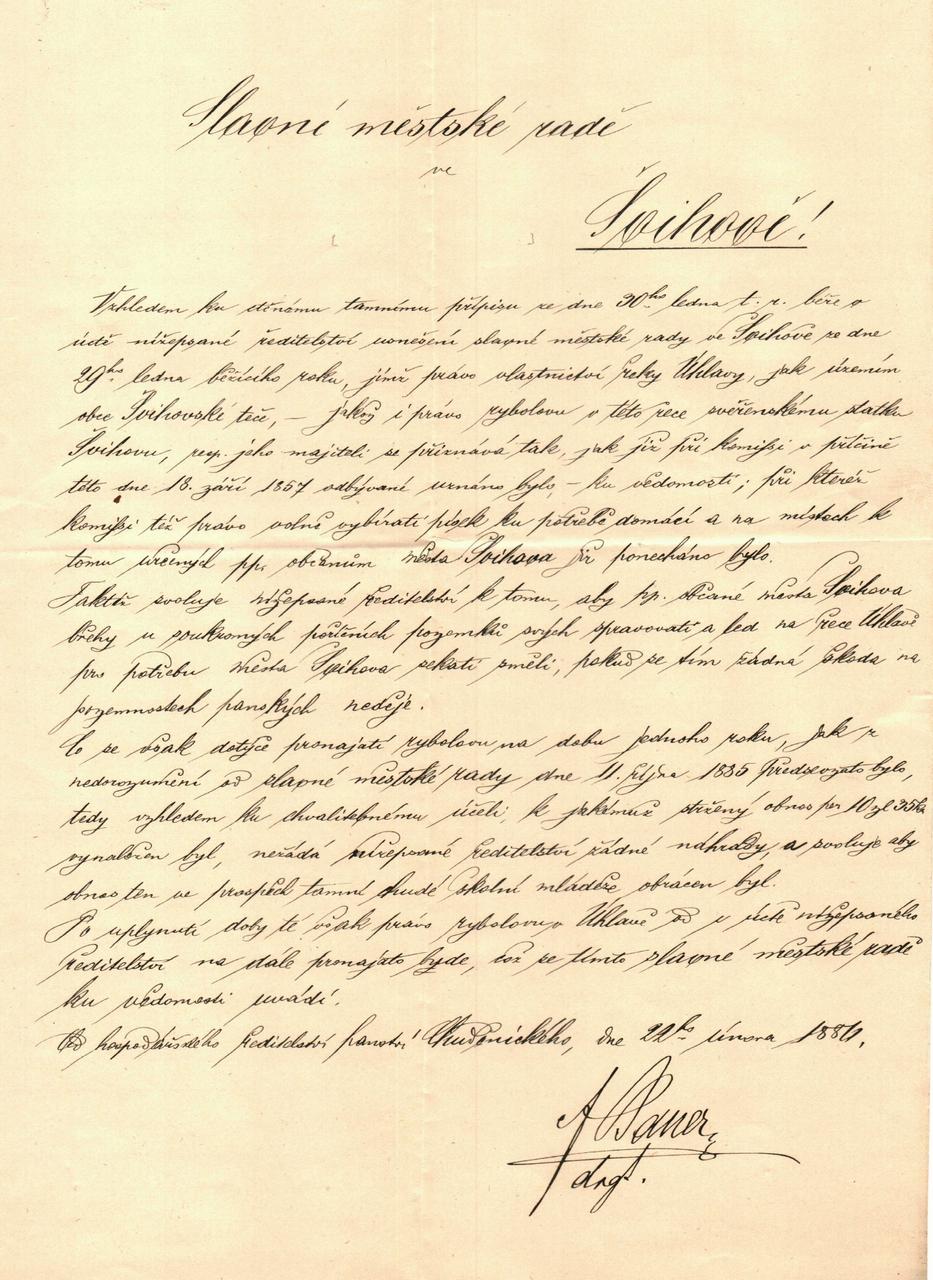 Slavné městské radě
ve
Švihově!
Vzhledem ku ctěnému tamnímu přípisu ze dne 30ho ledna t. r. béře v
úctě nížepsané ředitelství usnešení slavné městské rady ve Švihově ze dne
29ho ledna běžícího roku, jímž právo vlastnictví řeky Úhlavy, jak územím
obce Švihovské teče, – jakož i právo rybolovu v této řece svěřenskému statku
Švihovu, resp. jeho majiteli se přiznává tak, jak již při komissi v příčině
této dne 18. září 1857 odbývané uznáno bylo, – ku vědomosti; při kteréž
komissi též právo volně vybírati písek ku potřebě domácí a na místech k
tomu určených pp. občanům města Švihova již ponecháno bylo.
Taktéž svoluje nížepsané ředitelství k tomu, aby pp. občané města Švihova
břehy u soukromých pozemků svých spravovati a led na řece Úhlavě
pro potřebu města Švihova sekati směli, pokud se tím žádná škoda na
pozemnostech panských neděje.
Co se však dotýče pronajatí rybolovu na dobu jednoho roku, jak z
nedorozumění od slavné městské rady dne 11. října 1885 předsevzato bylo,
tedy vzhledem ku chvalitebnému účeli, k jakémuž stržený obnos per 10 zl 35 kr
vynaložen byl, nežádá nížepsané ředitelství žádné náhrady, a svoluje aby
obnos ten ve prospěch tamní chudé školní mládeže obrácen byl.
Po uplynutí doby té však právo rybolovu v Úhlavě od v úctě nížepsaného
ředitelství na dále pronajato bude, což se tímto slavné městské radě
ku vědomosti uvádí.
Od hospodářského ředitelství panství Chudenického, dne 22ho února 1884.
A Bauer